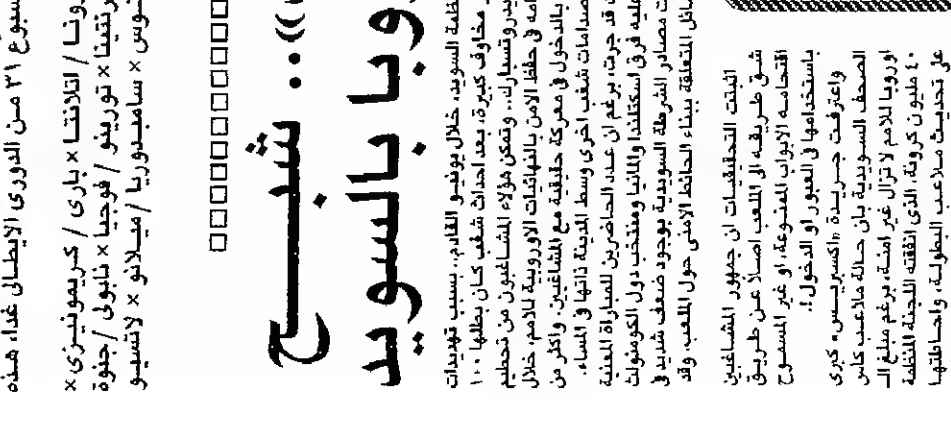 سبوع ٣١ من الدورى الايطالى غدا، هذه
رونا / اتلانتا × بارى / كريمونيزى ×
رنتينا × تورينو / فوجيا × نابولى / جنوة
نوس × سامبدوريا / ميلانو × لاتسيو
.. شبح
وبا بالسويد
ظمة السويد، خلال يونيو القادم.. بسبب تهديدات
مخاوف كبيرة، بعد احداث شغب كان بطلها ١٠٠
يدروتسبارك.. وتمكن هؤلاء المشاغبون من تحطيم
امه فى حفظ الامن بالنهائيات الاوروبية للامم، خلال
بالدخول فى معركة حقيقية مع المشاغبين. واكثر من
صدامات شغب اخرى وسط المدينة ذاتها فى المساء.
قد جرت، برغم ان عدد الحاضرين للمباراة المعنية
عليه فرق اسكتلندا والمانيا ومنتخب دول الكومنولث
ت مصادر الشرطة السويدية بوجود ضعف شديد فى
سائل المتعلقة ببناء الحائط الامنى حول الملعب. وقد
اثبتت التحقيقات ان جمهور المشاغبين
شق طريقه الى الملعب اصلا عن طريق
اقتحامه الابواب الممنوعة، او غير المسموح
باستخدامها فى العبور او الدخول!.
واعترفت جريدة «اكسبريس» كبرى
الصحف السويدية بان حالة ملاعب كاس
اوروبا للامم لا تزال غير امنة، برغم مبلغ الـ
٤٠ مليون كرونة، الذى انفقته اللجنة المنظمة
على تحديث ملاعب البطولة، واحاطتها